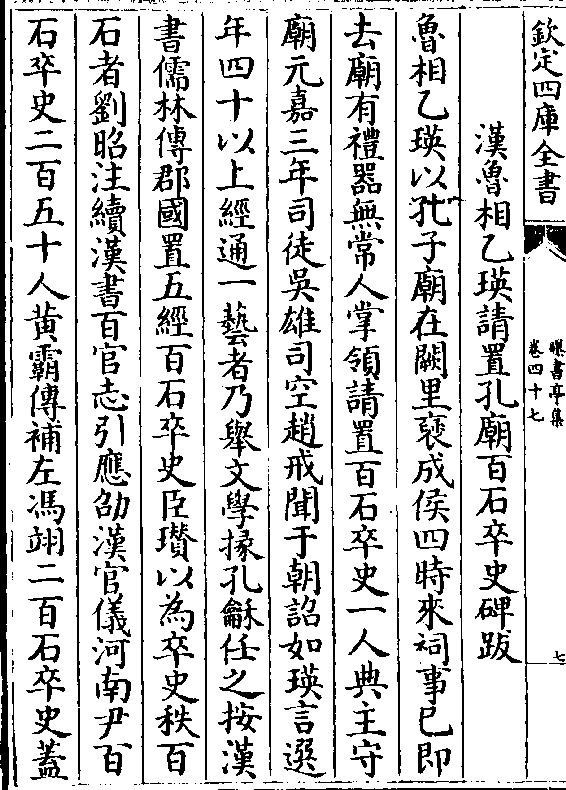 欽定四庫全書
曝書亭集
卷四十七
七
漢魯相乙瑛請置孔廟百石卒史碑跋
魯相乙瑛以孔子廟在闕里褒成侯四時來祠事已即
去廟有禮器無常人掌領請置百石卒史一人典主守
廟元嘉三年司徒吳雄司空趙戒聞于朝詔如瑛言選
年四十以上經通一藝者乃舉文學掾孔龢任之按漢
書儒林傳郡國置五經百石卒史臣瓚以為卒史秩百
石者劉昭注續漢書百官志引應劭漢官儀河南尹百
石卒史二百五十人黄霸傳補左馮翊二百石卒史蓋